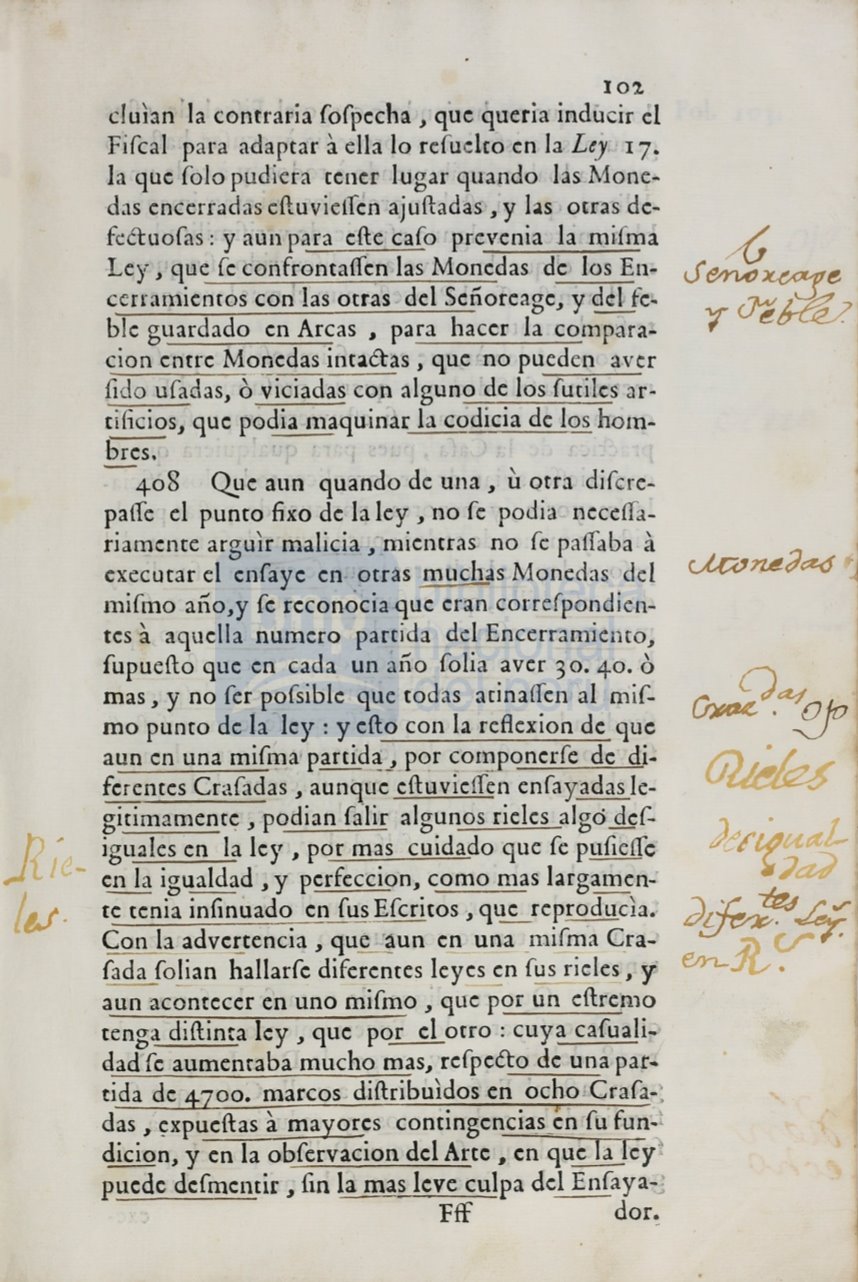 102
cluìan la contraria ſoſpecha , que queria inducir el
Fiſcal para adaptar à ella lo reſuelto en la Ley 17.
la que ſolo pudiera tener lugar quando las Mone-
das encerradas eſtuvieſſen ajuſtadas , y las otras de-
fectuoſas : y aun para eſte caſo prevenia la miſma
Ley , que ſe confrontaſſen las Monedas de los En-
cerramientos con las otras del Señoreage, y del fe-
ble guardado en Arcas , para hacer la compara-
cion entre Monedas intactas , que no pueden aver
ſido uſadas, ò viciadas con alguno de los ſutiles ar-
tificios, que podia maquinar la codicia de los hom-
bres.
408 Que aun quando de una , ù otra diſcre-
paſſe el punto fixo de la ley , no ſe podia neceſſa-
riamente arguìr malicia , mientras no ſe paſſaba à
executar el enſaye en otras muchas Monedas del
miſmo año, y ſe reconocia que eran correſpondien-
tes à aquella numero partida del Encerramiento,
ſupueſto que en cada un año ſolia aver 30. 40. ò
mas , y no ſer poſsible que todas atinaſſen al miſ-
mo punto de la ley : y eſto con la reflexion de que
aun en una miſma partida , por componerſe de di-
ferentes Craſadas , aunque eſtuvieſſen enſayadas le-
gitimamente , podian ſalir algunos rieles algo deſ-
iguales en la ley , por mas cuidado que ſe puſieſſe
en la igualdad , y perfeccion, como mas largamen-
te tenia inſinuado en ſus Eſcritos , que reproducìa.
Con la advertencia , que aun en una miſma Cra-
ſada ſolian hallarſe diferentes leyes en ſus rieles , y
aun acontecer en uno miſmo , que por un eſtremo
tenga diſtinta ley , que por el otro : cuya caſuali-
dad ſe aumentaba mucho mas, reſpecto de una par-
tida de 4700. marcos diſtribuìdos en ocho Craſa-
das , expueſtas à mayores contingencias en ſu fun-
dicion, y en la obſervacion del Arte , en que la ley
puede deſmentir , ſin la mas leve culpa del Enſaya-
Fff dor.
Señoreage
y Feble.
Monedas
Rieles
desigual-
dad
difer.tes Ley.
en R.s
Rie-
les.